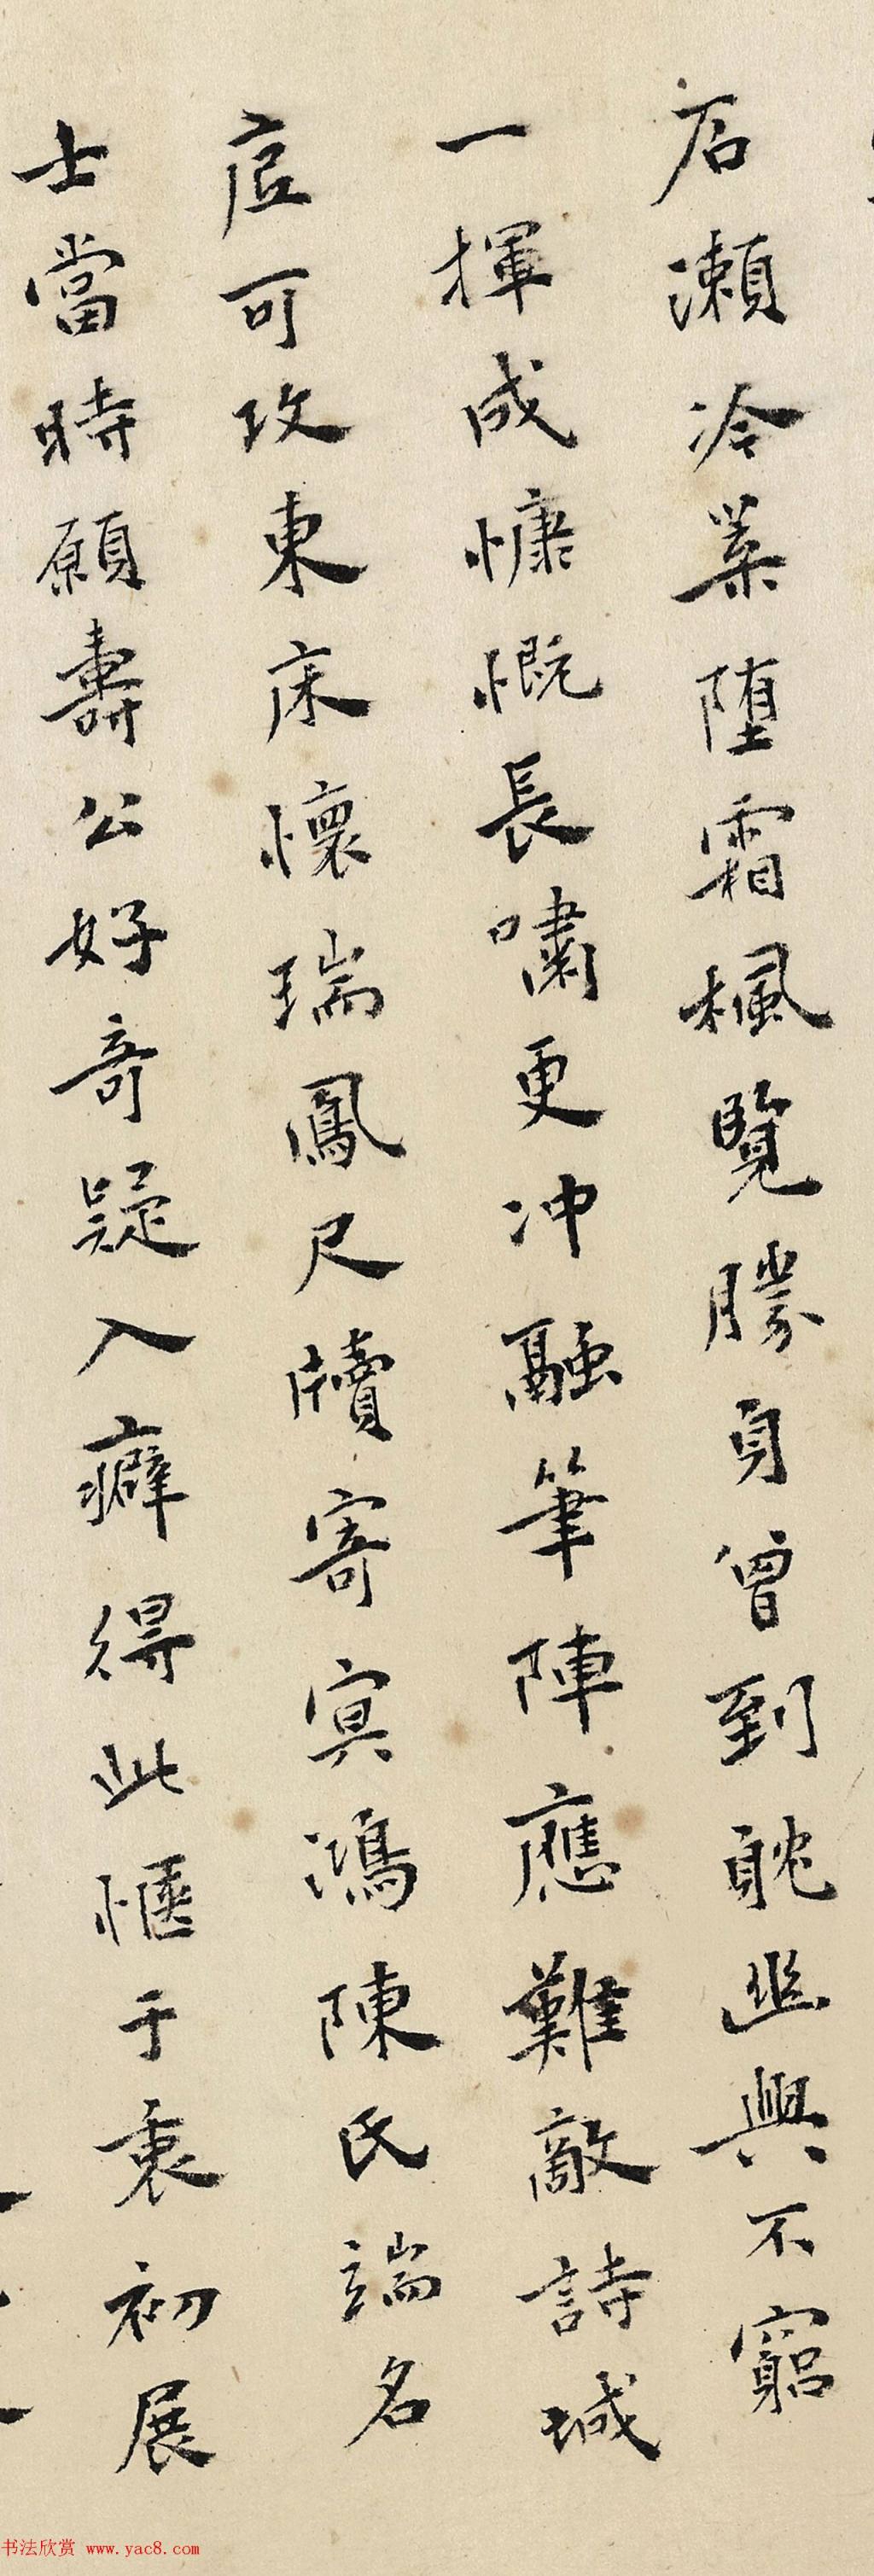 石瀨冷葉堕霜楓覽勝身曾到耽幽興不窮
一揮成慷慨長嘯更冲融筆陣應難敵詩城
詎可攻東床懷瑞鳳尺牘寄冥鴻陳氏端名
士當時願壽公好奇疑入癖得此愜于衷初展
书法欣赏 www.yac8.com